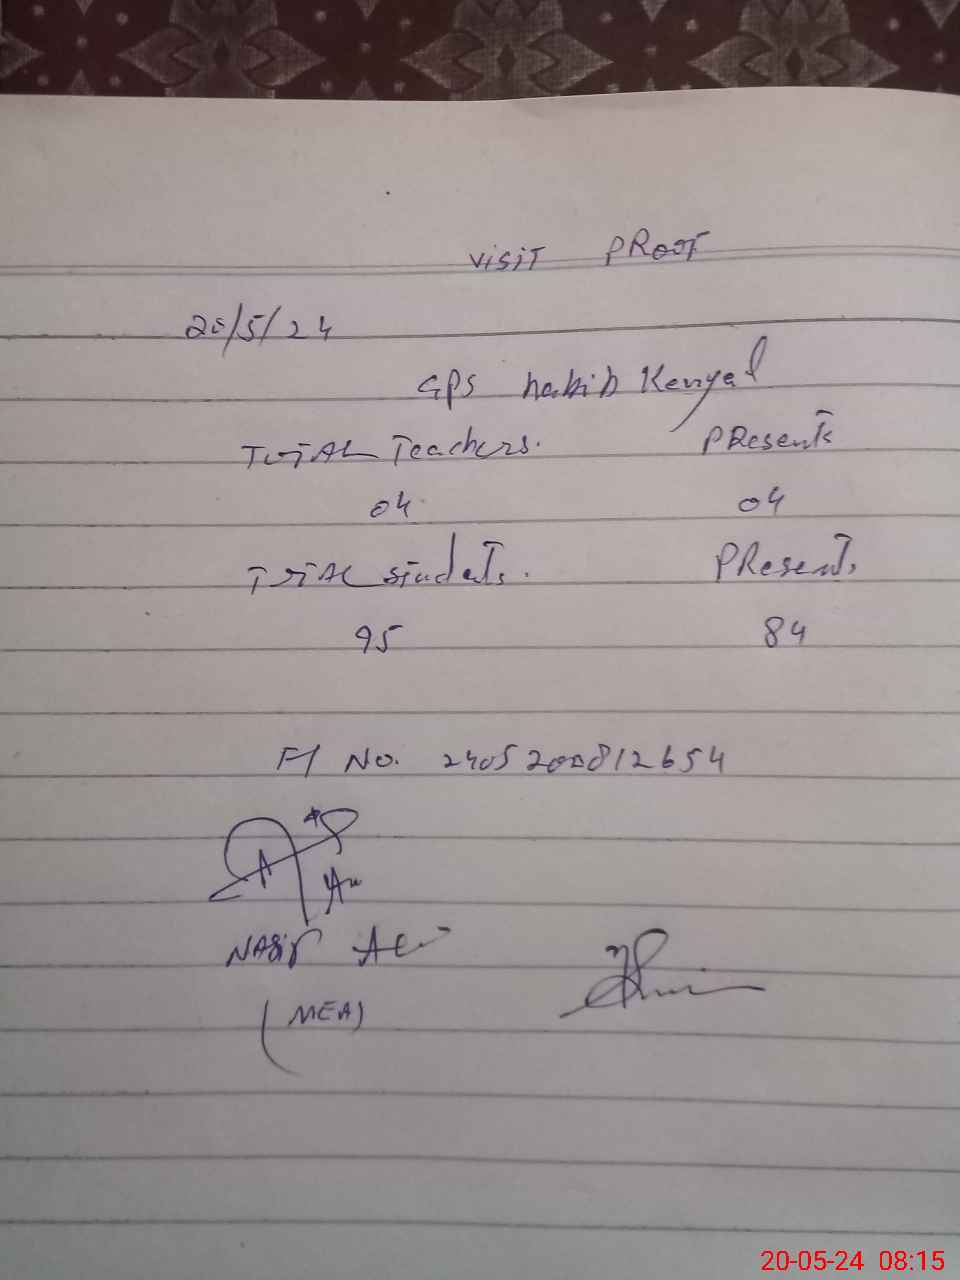 Visit PRoof
20/5/24
GPS habib Kenyal
TOTAL Teachers. PResents
04 04
TOTAL students. PResents
95 84
FI No. 2405200812654
NASIR
(MEA)
20-05-24 08:15